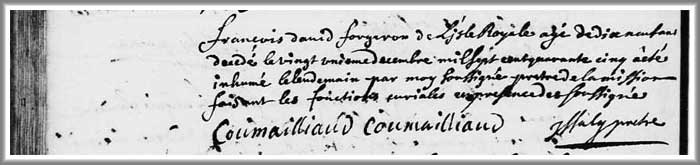 françois david forgeron de L'isle Royale agé de dix neuf ans
decedé le vingt unieme decembre mil sept cent quarante cinq a été
inhumé le lendemain par moy soussigné pretre de la mission
faisant les fonctions curiales en presence des soussignés
Coumailliaud Coumailliaud pretre